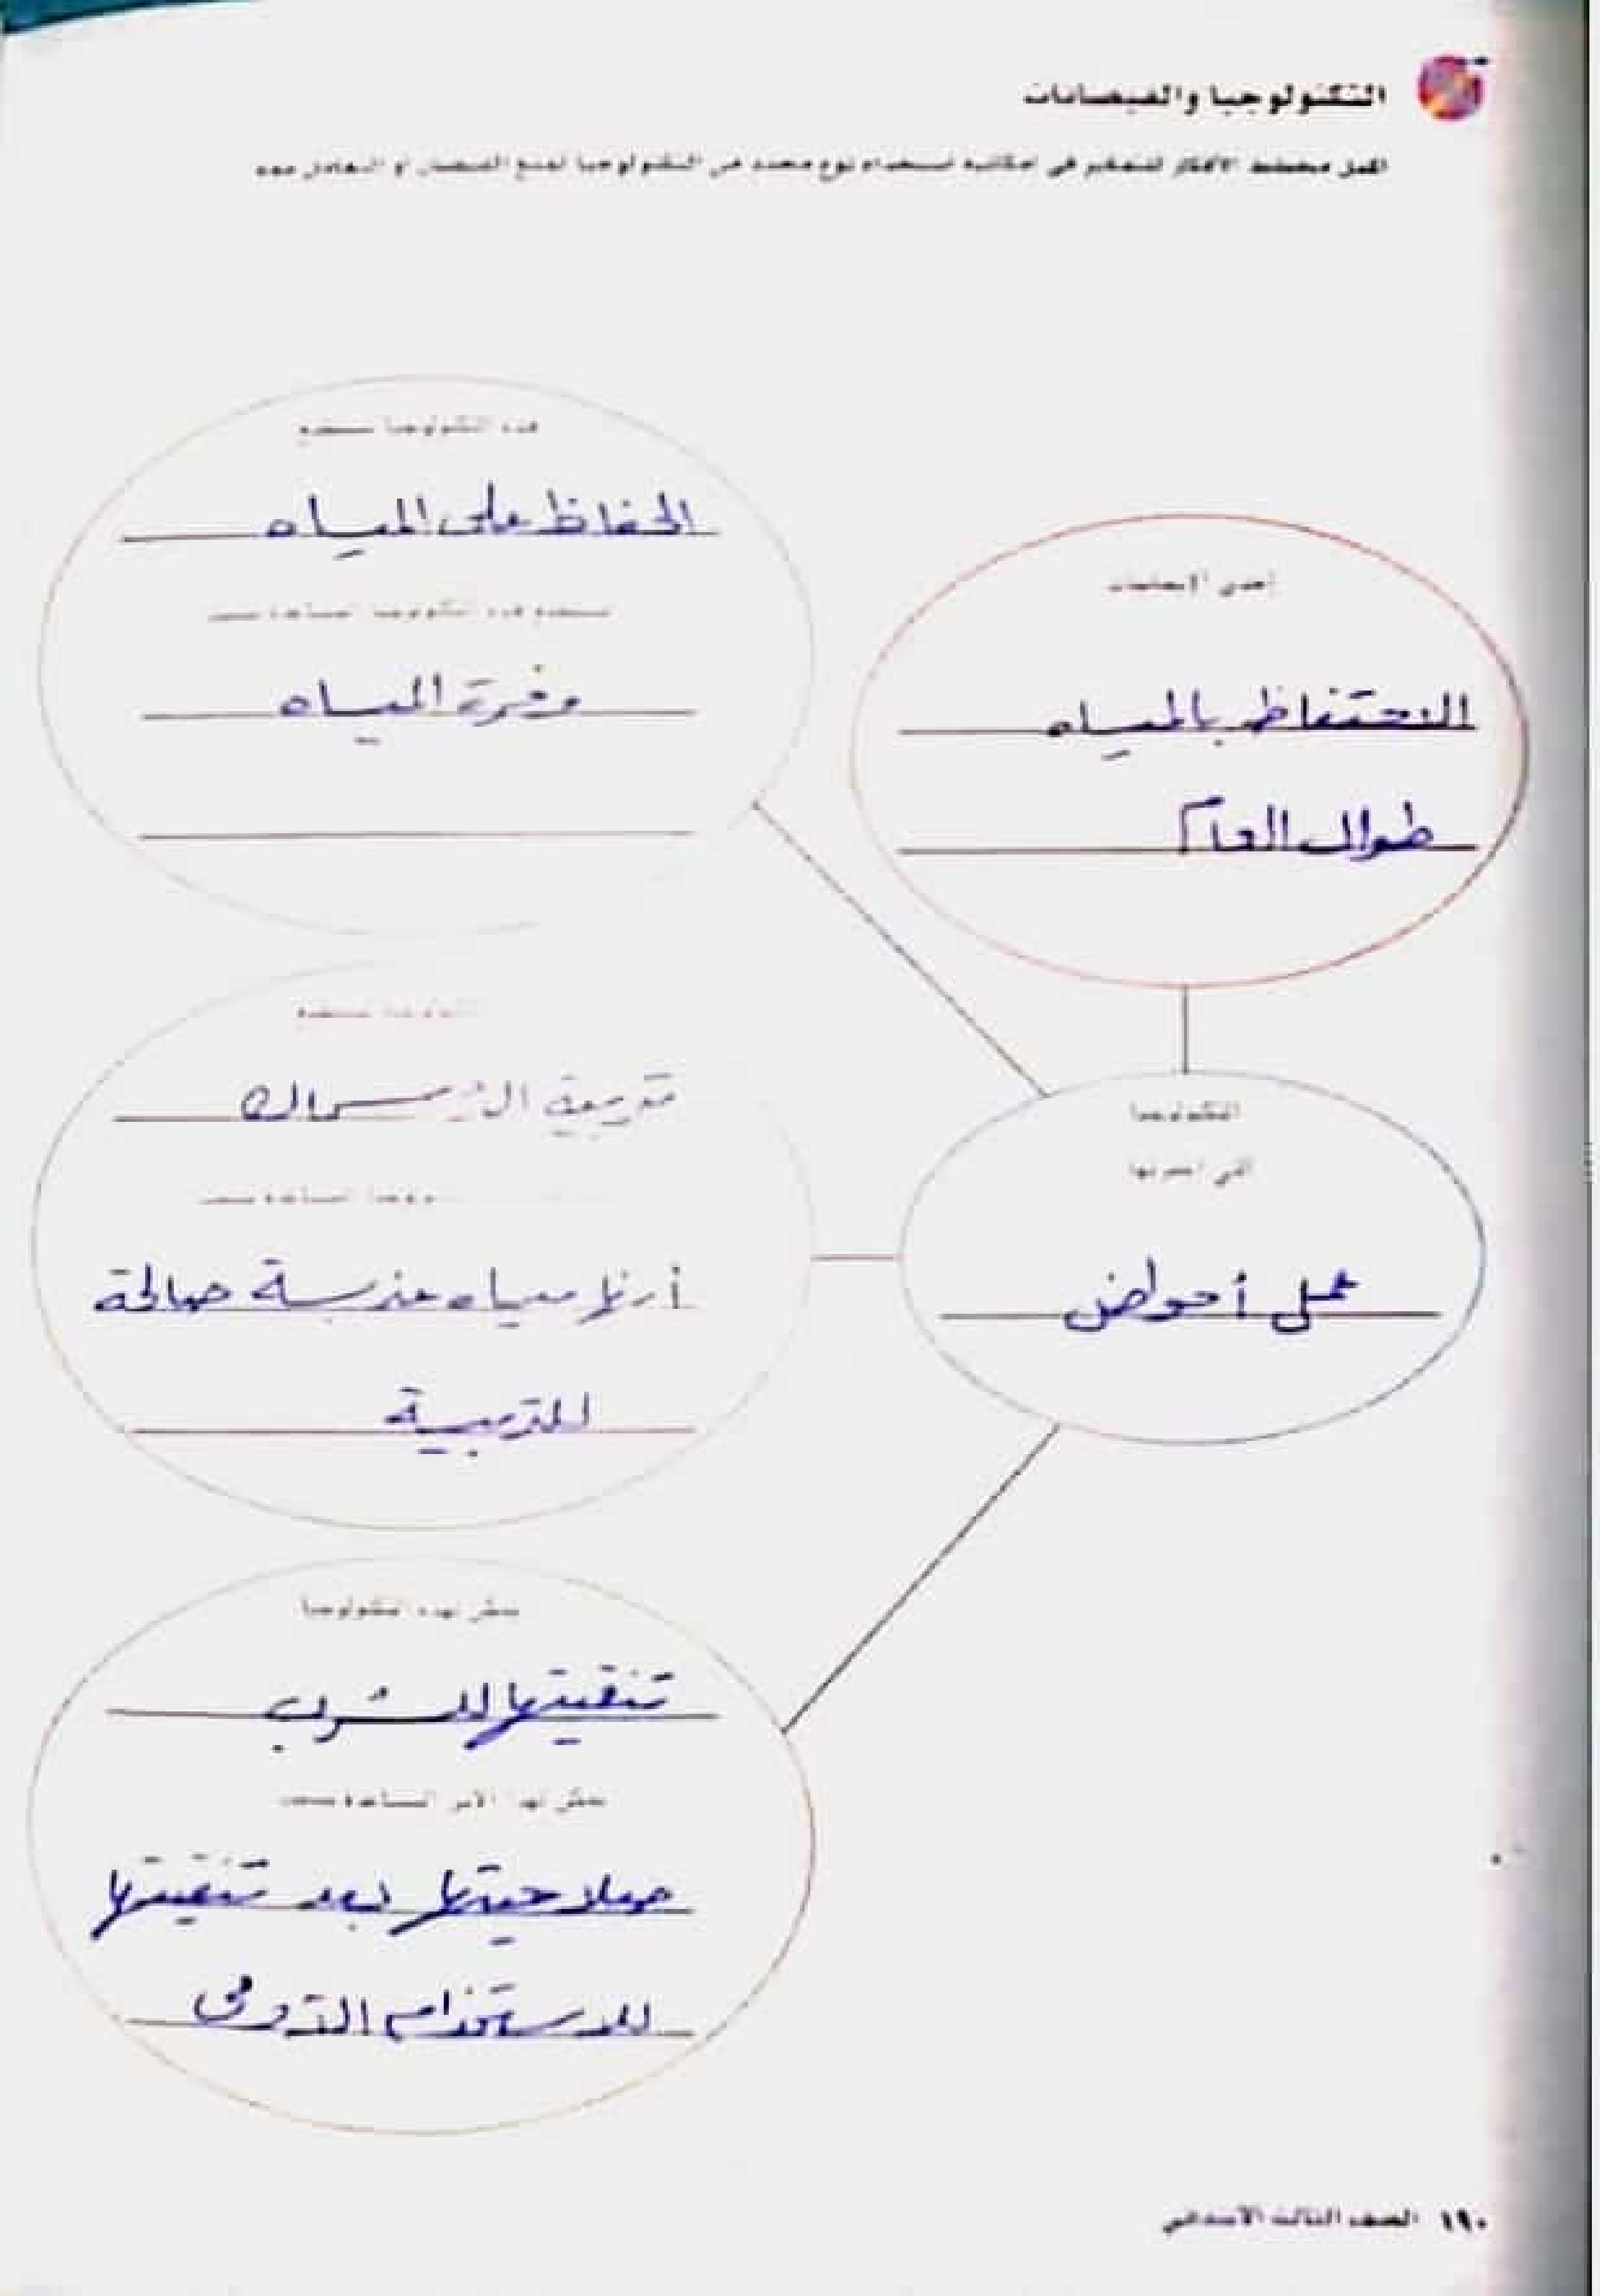 التكنولوجيا والفيضانات
أكمل مخطط الأفكار للتفكير في إمكانية استخدام نوع محدد من التكنولوجيا لمنع الفيضان أو التعامل معه
إحدى الإيجابيات
الاحتفاظ بالمياه
طوال العام
التكنولوجيا
التي اخترتها
عمل أحواض
هذه التكنولوجيا تستخدم
الحفاظ على المياه
تستخدم هذه التكنولوجيا لمساعدة
وفرة المياه
التكنولوجيا تستخدم
تربية الأسماك
لمساعدة
أنها مياه عذبة صالحة
للتربية
يمكن لهذه التكنولوجيا
تنقيتها للشرب
يمكن لهذا الأمر المساعدة
صلاحيتها بعد تنقيتها
للاستخدام الآدمى
١٩٠ الصف الثالث الابتدائي